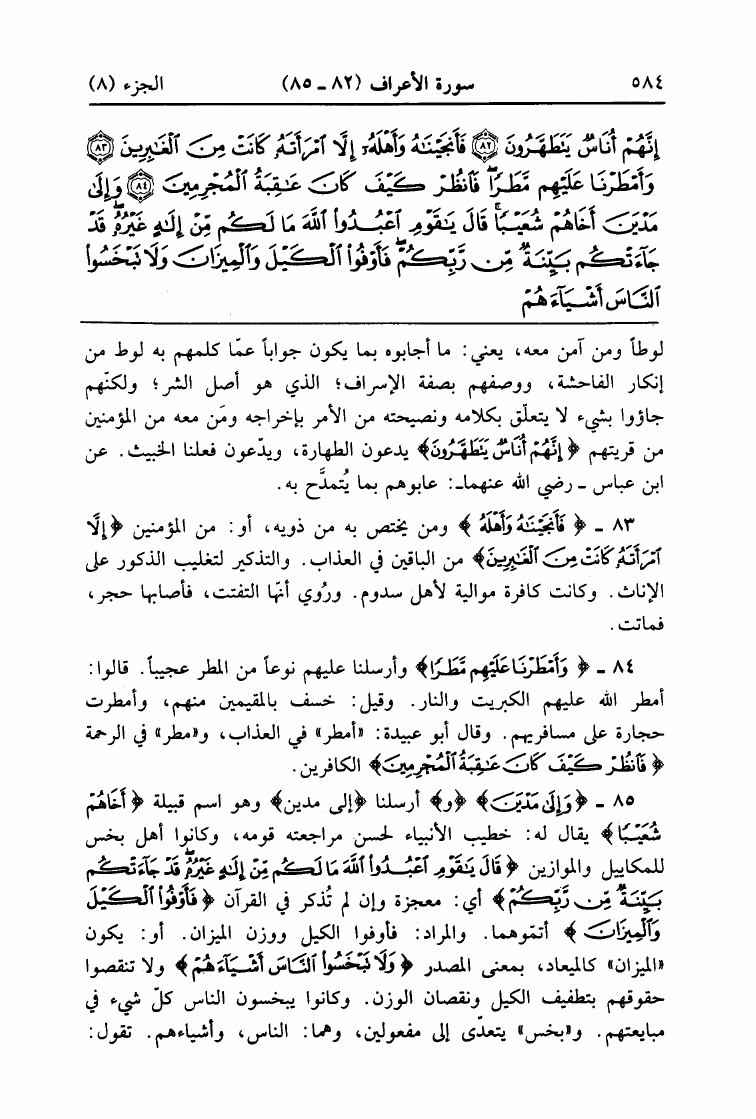 ٥٨٤ سورة الأعراف (٨٢ ـ ٨٥) الجزء (٨)
إِنَّهُمْ أُنَاسٌ يَتَطَهَّرُونَ ﴿٨٢﴾ فَأَنجَيْنَٰهُ وَأَهْلَهُۥٓ إِلَّا ٱمْرَأَتَهُۥ كَانَتْ مِنَ ٱلْغَٰبِرِينَ ﴿٨٣﴾
وَأَمْطَرْنَا عَلَيْهِم مَّطَرًاۖ فَٱنظُرْ كَيْفَ كَانَ عَٰقِبَةُ ٱلْمُجْرِمِينَ ﴿٨٤﴾ وَإِلَىٰ
مَدْيَنَ أَخَاهُمْ شُعَيْبًاۚ قَالَ يَٰقَوْمِ ٱعْبُدُوا۟ ٱللَّهَ مَا لَكُم مِّنْ إِلَٰهٍ غَيْرُهُۥۖ قَدْ
جَآءَتْكُم بَيِّنَةٌ مِّن رَّبِّكُمْۖ فَأَوْفُوا۟ ٱلْكَيْلَ وَٱلْمِيزَانَ وَلَا تَبْخَسُوا۟
ٱلنَّاسَ أَشْيَآءَهُمْ
لوطاً ومن آمن معه، يعني: ما أجابوه بما يكون جواباً عمّا كلمهم به لوط من
إنكار الفاحشة، ووصفهم بصفة الإسراف؛ الذي هو أصل الشر؛ ولكنّهم
جاؤوا بشيء لا يتعلّق بكلامه ونصيحته من الأمر بإخراجه ومَن معه من المؤمنين
من قريتهم ﴿إِنَّهُمْ أُنَاسٌ يَتَطَهَّرُونَ﴾ يدعون الطهارة، ويدّعون فعلنا الخبيث. عن
ابن عباس ـ رضي الله عنهماـ: عابوهم بما يُتمدَّح به.
٨٣ ـ ﴿فَأَنجَيْنَٰهُ وَأَهْلَهُ﴾ ومن يختص به من ذويه، أو: من المؤمنين ﴿إِلَّا
ٱمْرَأَتَهُۥ كَانَتْ مِنَ ٱلْغَٰبِرِينَ﴾ من الباقين في العذاب. والتذكير لتغليب الذكور على
الإناث. وكانت كافرة موالية لأهل سدوم. ورُوي أنّها التفتت، فأصابها حجر،
فماتت.
٨٤ ـ ﴿وَأَمْطَرْنَا عَلَيْهِم مَّطَرًا﴾ وأرسلنا عليهم نوعاً من المطر عجيباً. قالوا:
أمطر الله عليهم الكبريت والنار. وقيل: خسف بالمقيمين منهم، وأمطرت
حجارة على مسافريهم. وقال أبو عبيدة: «أمطر» في العذاب، و«مطر» في الرحمة
﴿فَٱنظُرْ كَيْفَ كَانَ عَٰقِبَةُ ٱلْمُجْرِمِينَ﴾ الكافرين.
٨٥ ـ ﴿وَإِلَىٰ مَدْيَنَ﴾ ﴿و﴾ أرسلنا ﴿إلى مدين﴾ وهو اسم قبيلة ﴿أَخَاهُمْ
شُعَيْبًا﴾ يقال له: خطيب الأنبياء لحسن مراجعته قومه، وكانوا أهل بخس
للمكاييل والموازين ﴿قَالَ يَٰقَوْمِ ٱعْبُدُوا۟ ٱللَّهَ مَا لَكُم مِّنْ إِلَٰهٍ غَيْرُهُۥۖ قَدْ جَآءَتْكُم
بَيِّنَةٌ مِّن رَّبِّكُمْ﴾ أي: معجزة وإن لم تُذكر في القرآن ﴿فَأَوْفُوا۟ ٱلْكَيْلَ
وَٱلْمِيزَانَ﴾ أتمّوهما. والمراد: فأوفوا الكيل ووزن الميزان. أو: يكون
«الميزان» كالميعاد، بمعنى المصدر ﴿وَلَا تَبْخَسُوا۟ ٱلنَّاسَ أَشْيَآءَهُمْ﴾ ولا تنقصوا
حقوقهم بتطفيف الكيل ونقصان الوزن. وكانوا يبخسون الناس كلّ شيء في
مبايعتهم. و«بخس» يتعدّى إلى مفعولين، وهما: الناس، وأشياءهم. تقول: